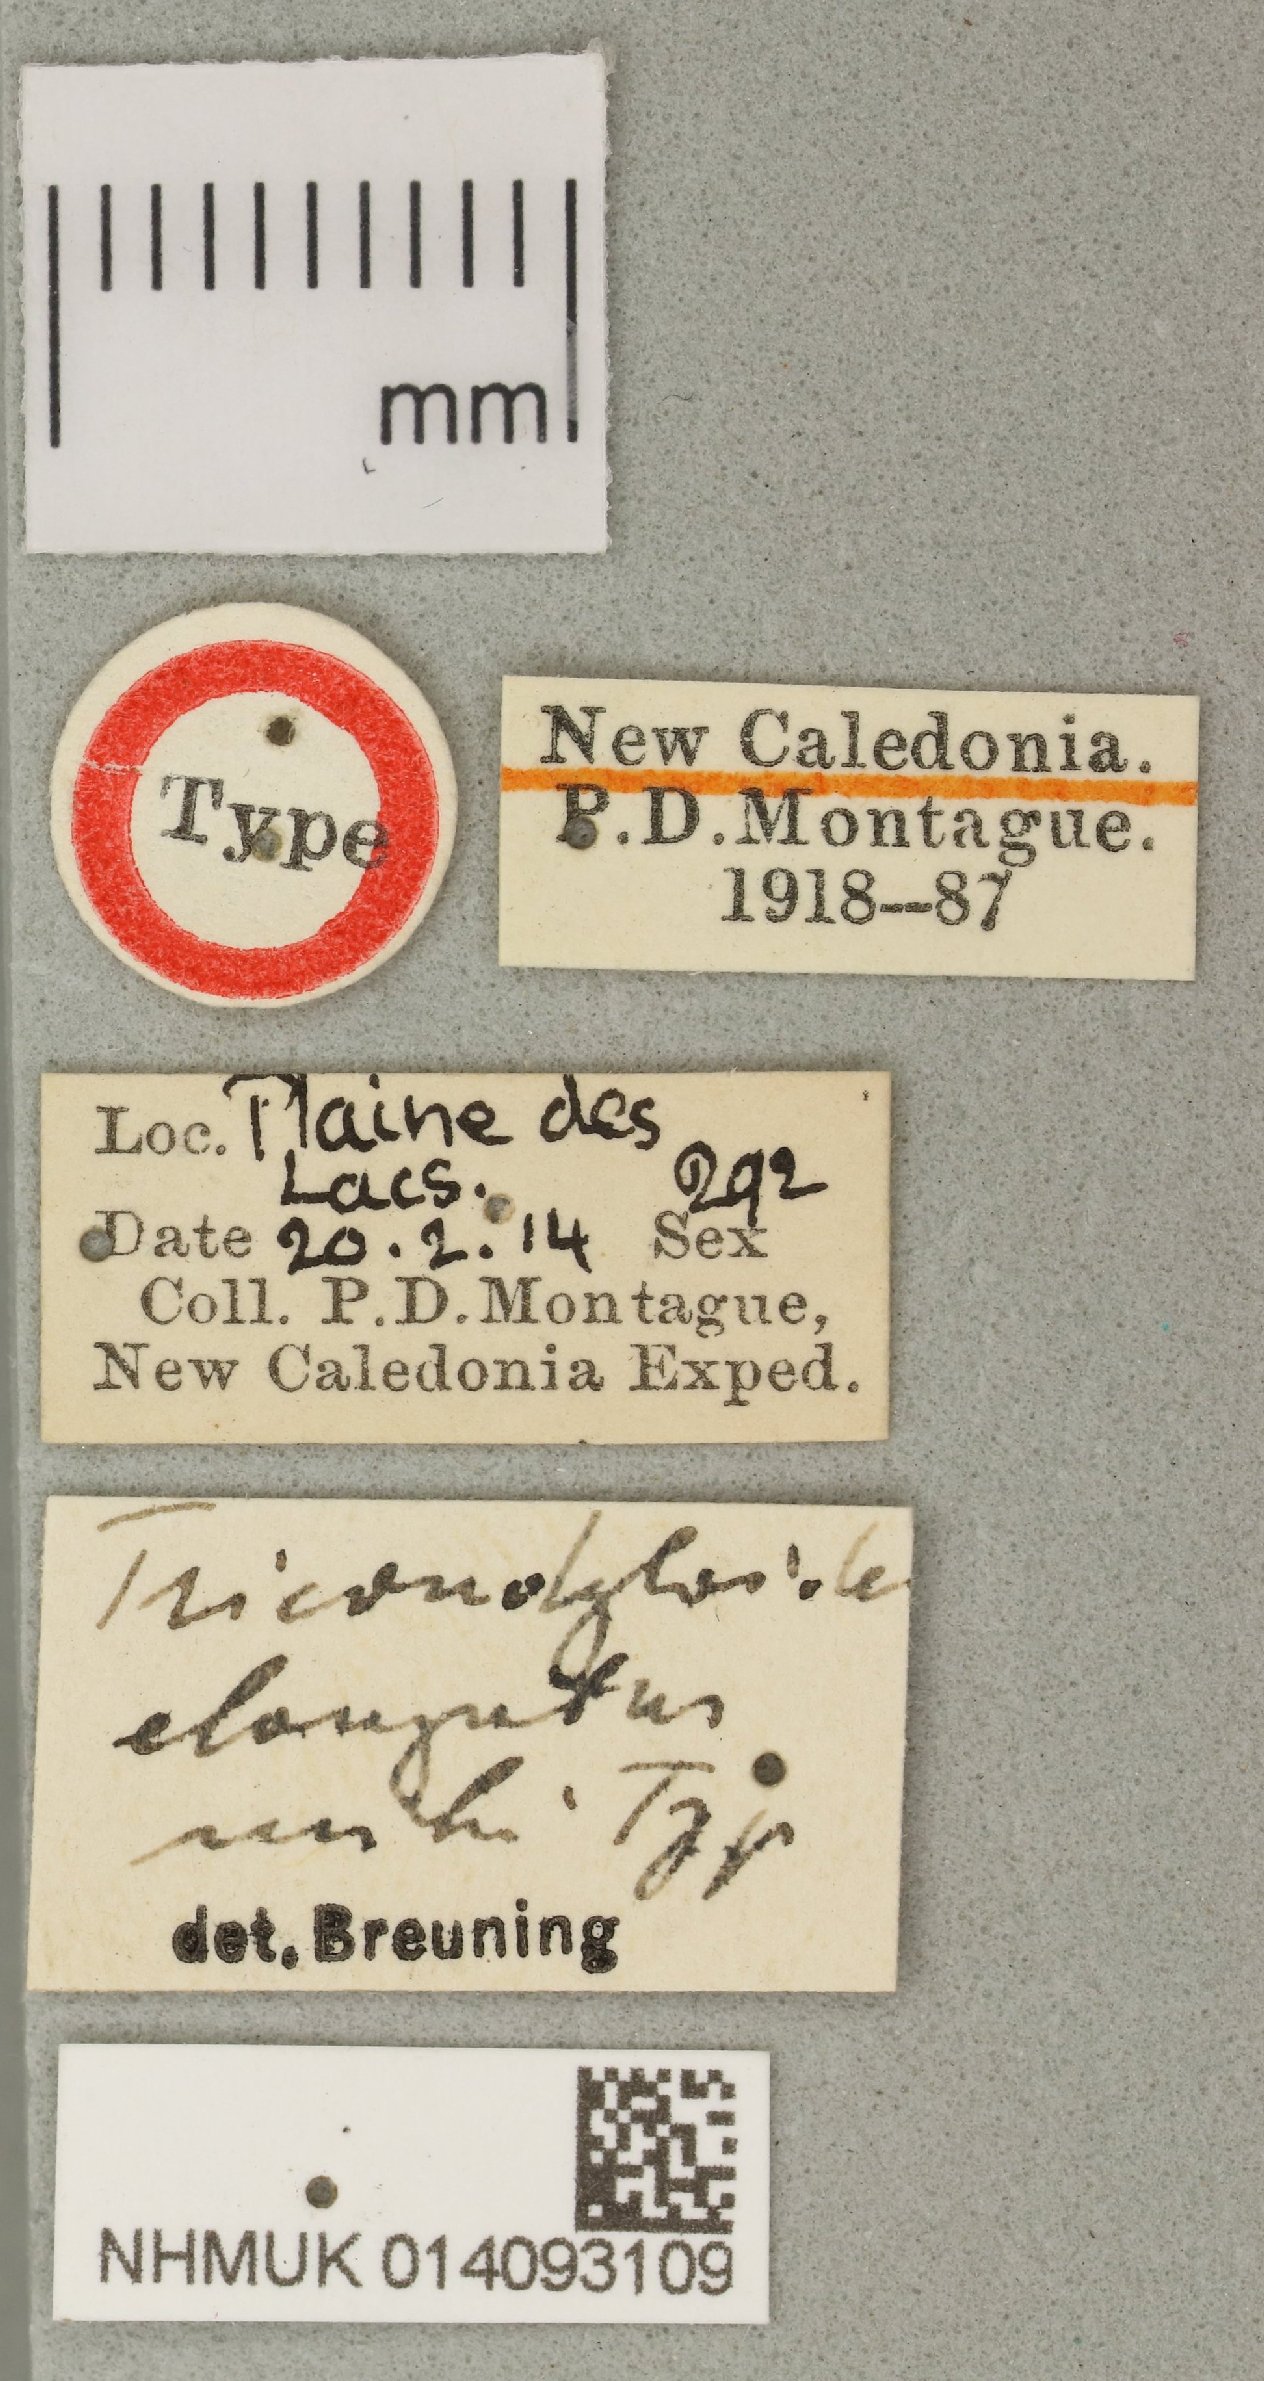 mm
Type
New Caledonia.
P.D.Montague.
1918–87
Loc. Plaine des
Lacs. 292
Date 20.2.14 Sex
Coll. P.D.Montague,
New Caledonia Exped.
elongatus
mihi Typ
det. Breuning
NHMUK 014093109